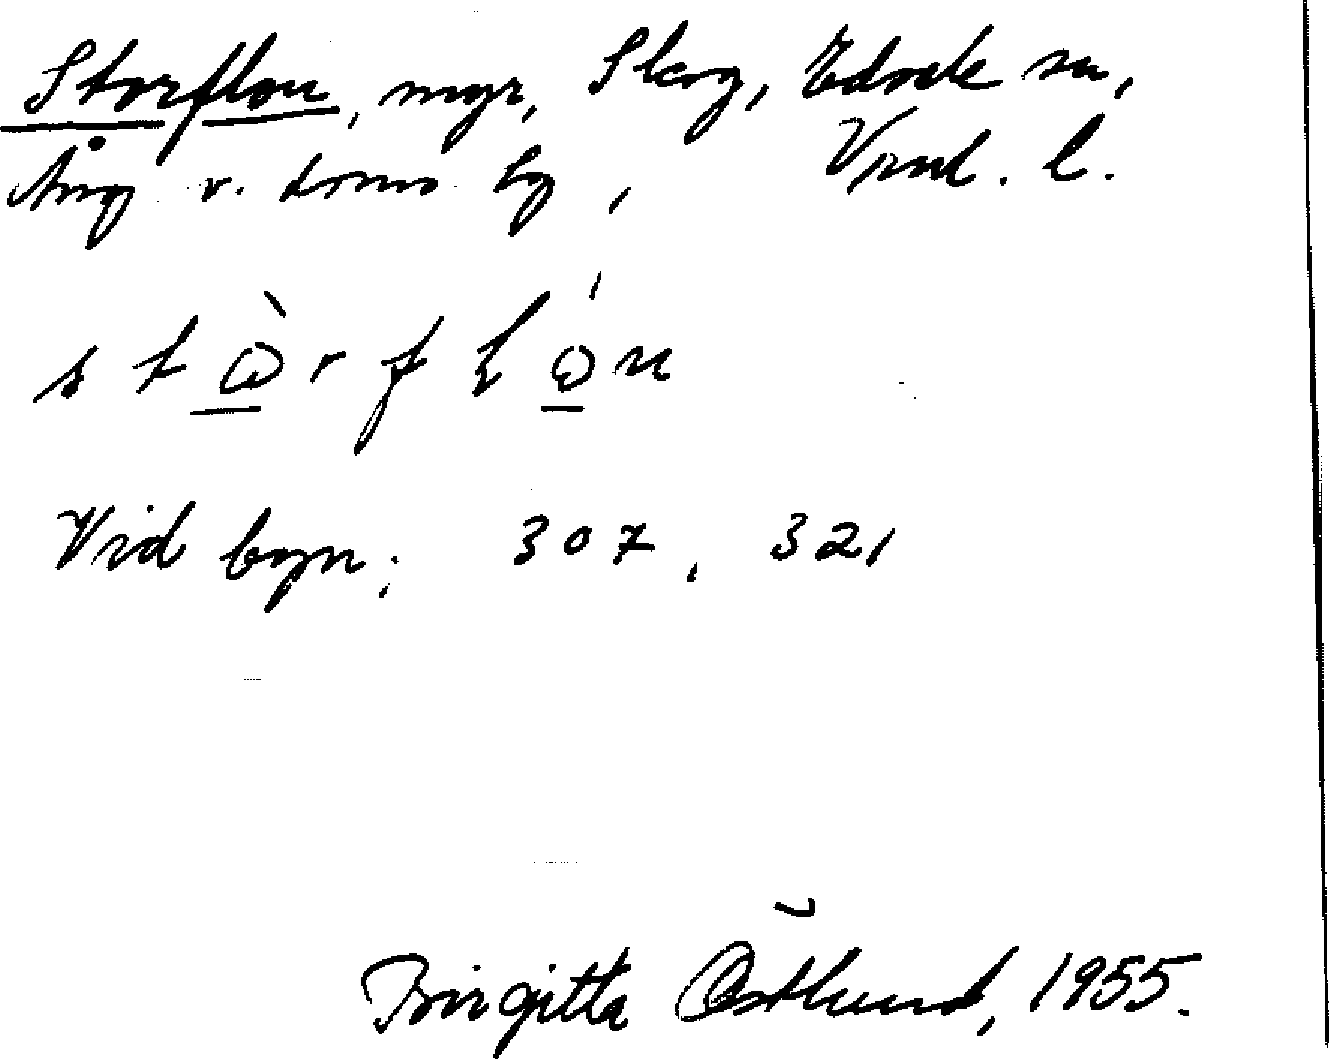 Storflon, mgr, Skog, Edsele sn,
Äng v. om by, Vnl. l.
stòrflón
Vid byn: 307, 321
Birgitta Östlund, 1955.